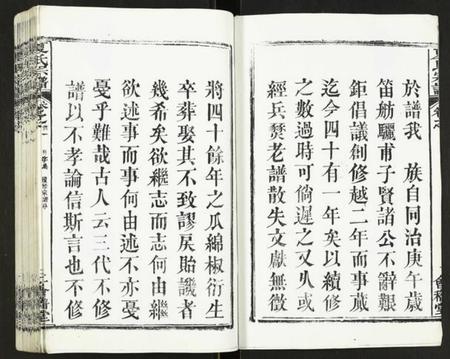 於譜我　族自同治庚午歲
笛舫驪甫子賢諸公不辭艱
鉅倡議創修越二年而事蕆
迄今四十有一年矣以續修
之數過時可倘遲之又久或
經兵燹老譜散失文獻無徵
將四十餘年之瓜綿椒衍生
卒葬娶其不致謬戾貽譏者
幾希矣欲繼志而志何由繼
欲述事而事何由述不亦戞
戞乎難哉古人云三代不修
譜以不孝論信斯言也不修
夏氏宗譜
卷之
會稽堂